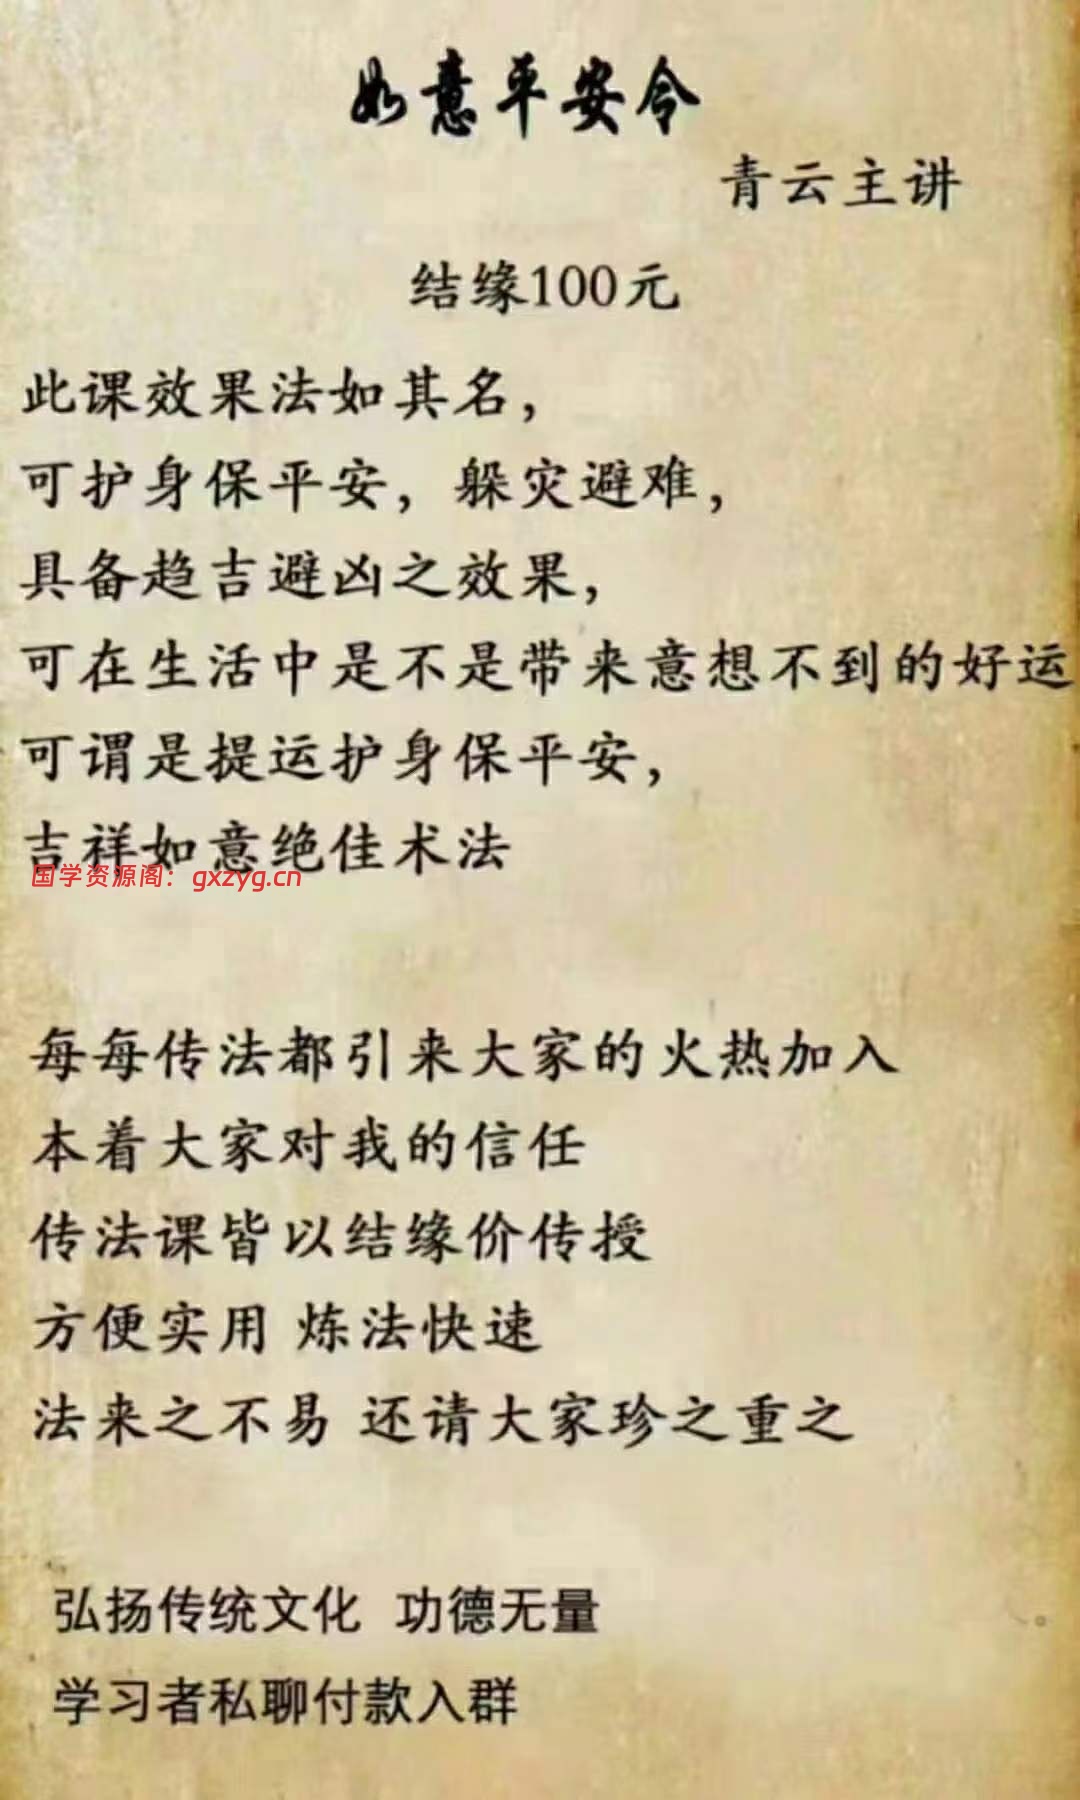 如意平安令
青云主讲
结缘100元
此课效果法如其名，
可护身保平安，躲灾避难，
具备趋吉避凶之效果，
可在生活中是不是带来意想不到的好运
可谓是提运护身保平安，
吉祥如意绝佳术法
国学资源阁：gxzyg.cn
每每传法都引来大家的火热加入
本着大家对我的信任
传法课皆以结缘价传授
方便实用 炼法快速
法来之不易 还请大家珍之重之
弘扬传统文化 功德无量
学习者私聊付款入群